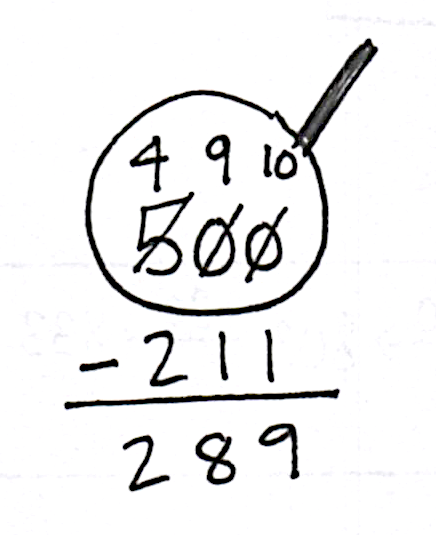 4 9 10
500
- 211
289